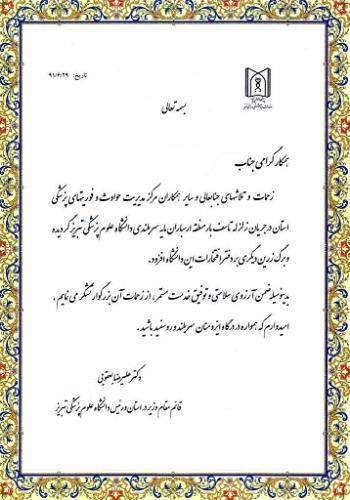 تاریخ: ۹۱/۶/۲۹
بسمه تعالی
همکار گرامی جناب
زحمات و تلاشهای جنابعالی و سایر همکاران مرکز مدیریت حوادث و فوریتهای پزشکی
استان در جریان زلزله تاسف بار منطقه ارسباران مایه سربلندی دانشگاه علوم پزشکی تبریز گردیده
و برگ زرین دیگری بر دفتر افتخارات این دانشگاه افزود.
بدینوسیله ضمن آرزوی سلامتی و توفیق خدمت مستمر، از زحمات آن بزرگوار تشکر می نمایم .
امیدوارم که همواره در درگاه ایزد منان سربلند و روسفید باشید .
دکتر علیرضا یعقوبی
قائم مقام وزیر در استان و رئیس دانشگاه علوم پزشکی تبریز